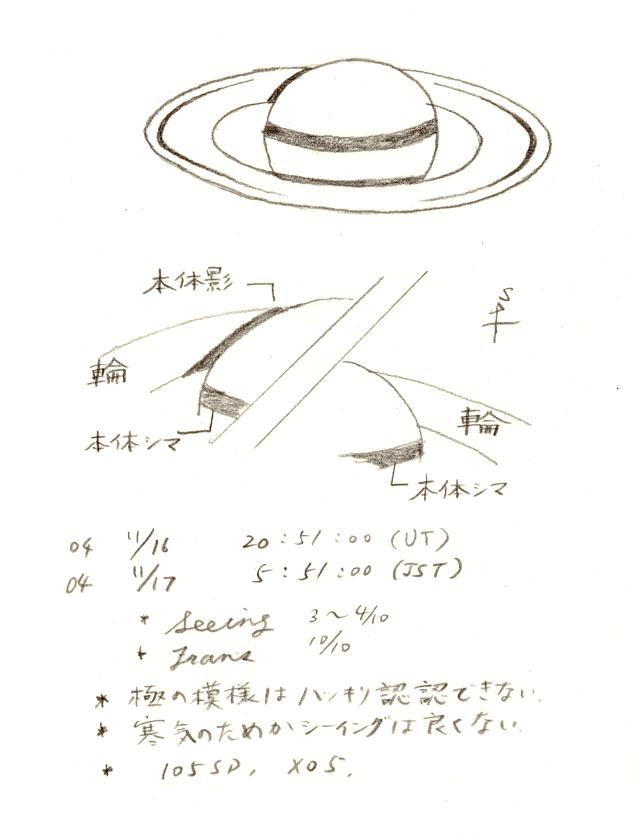 本体影
S
輪
輪
本体シマ
本体シマ
04 11/16 20:51:00 (UT)
04 11/17 5:51:00 (JST)
* Seeing 3~4/10
* Trans 10/10
* 極の模様はハッキリ認認できない.
* 寒気のためかシーイングは良くない.
* 105SD, XO5.